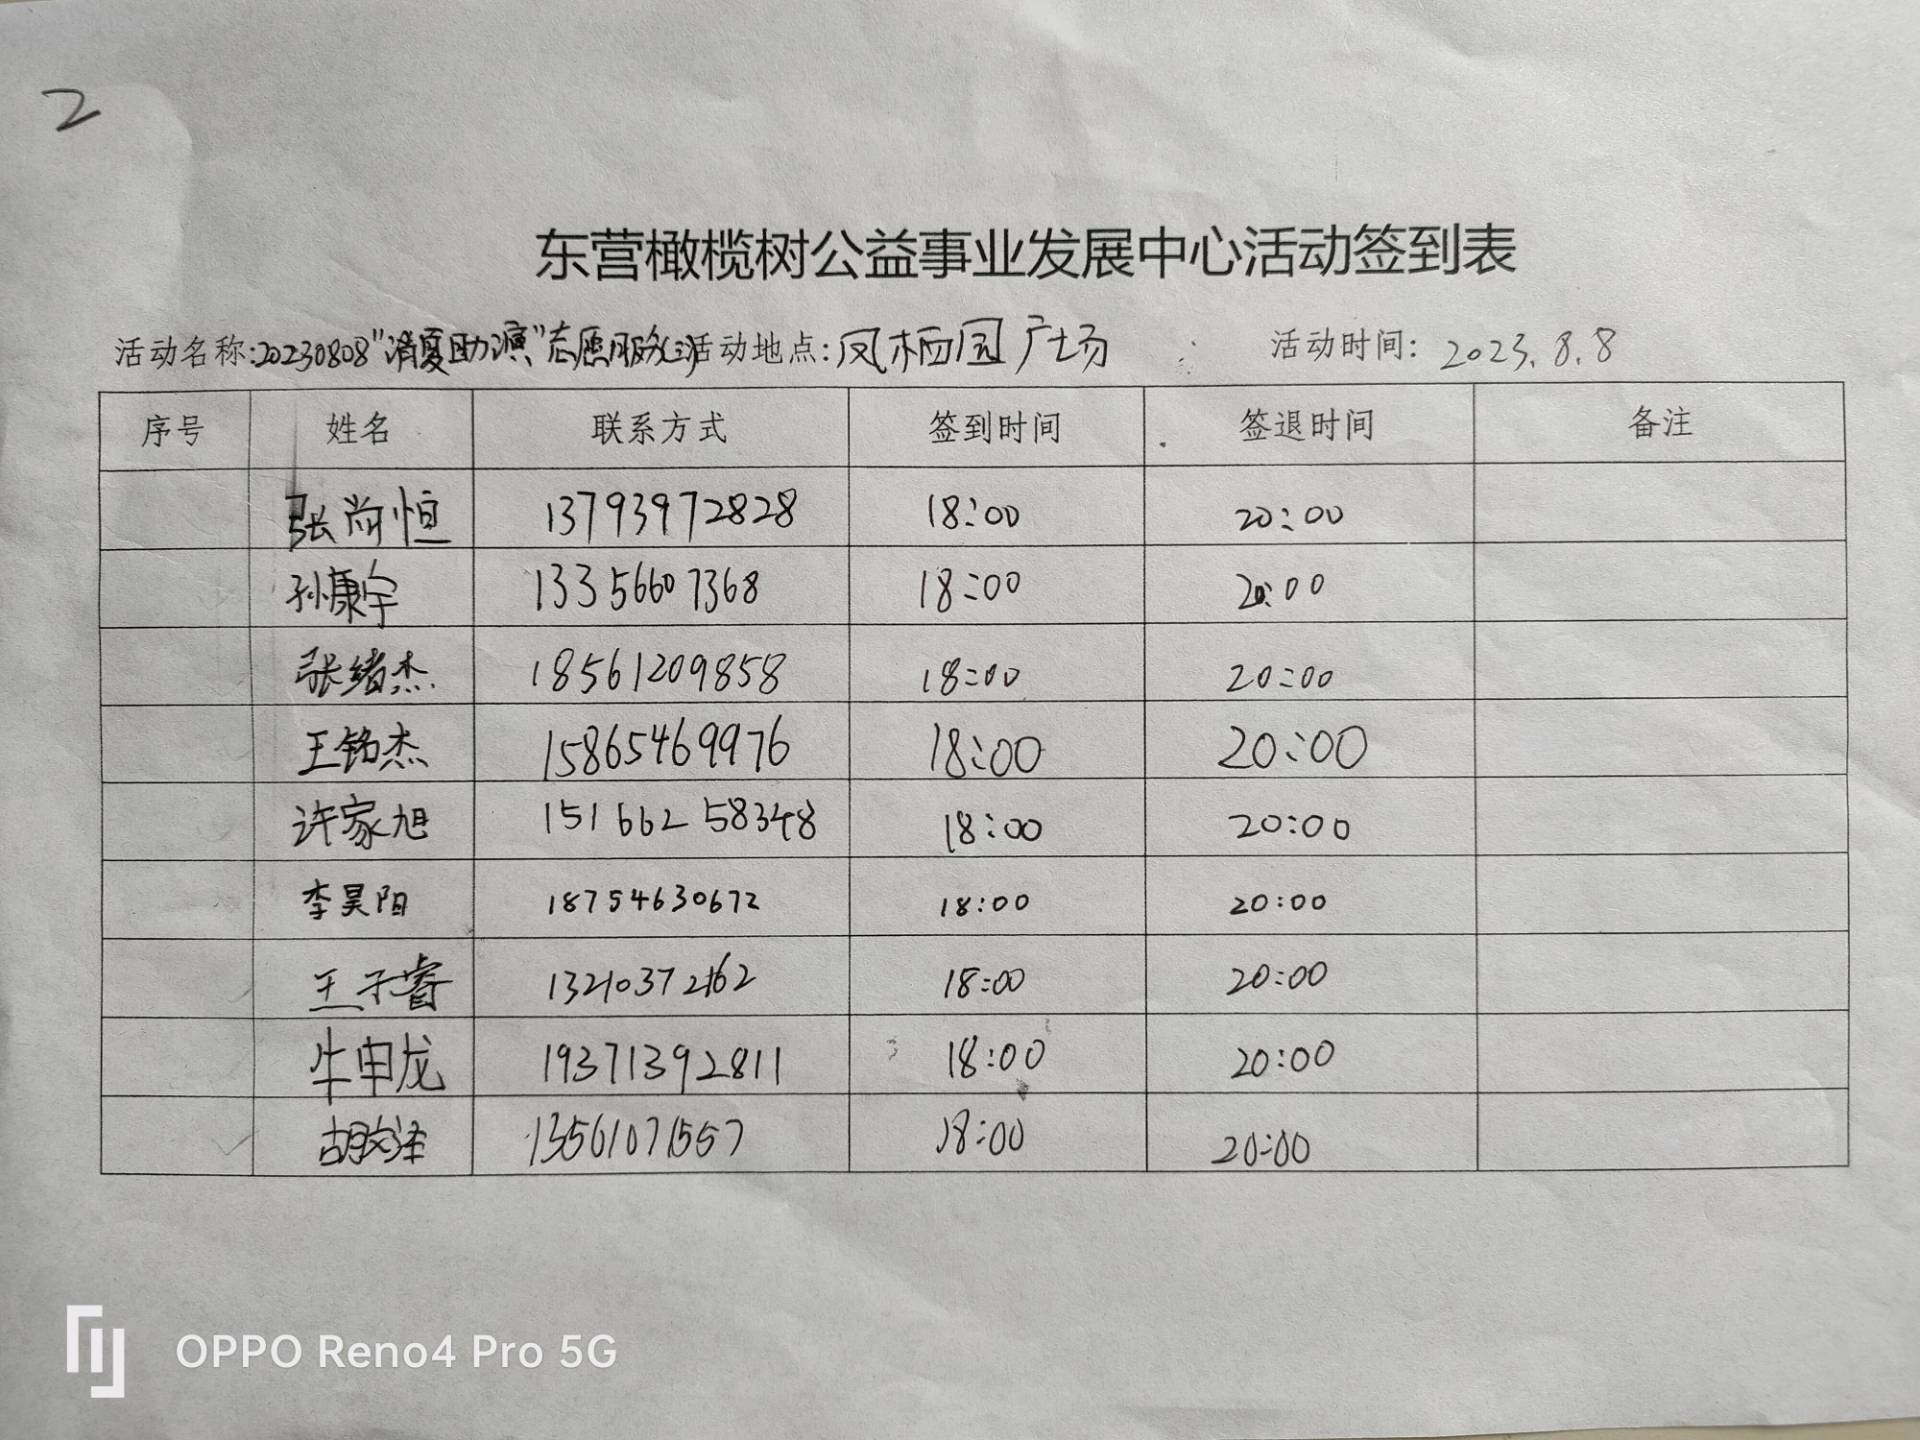 2
东营橄榄树公益事业发展中心活动签到表
活动名称:20230808"消夏助演"志愿服务(三) 活动地点:凤栖园广场 活动时间: 2023.8.8
序号 姓名 联系方式 签到时间 签退时间 备注
张尚恒 13793972828 18:00 20:00
孙康宇 13356607368 18:00 20:00
张绪杰 18561209858 18:00 20:00
王铭杰 15865469976 18:00 20:00
许家旭 15166258348 18:00 20:00
李昊阳 18754630672 18:00 20:00
王子睿 13210372162 18:00 20:00
牛申龙 19371392811 18:00 20:00
胡文泽 13561071557 18:00 20:00
OPPO Reno4 Pro 5G